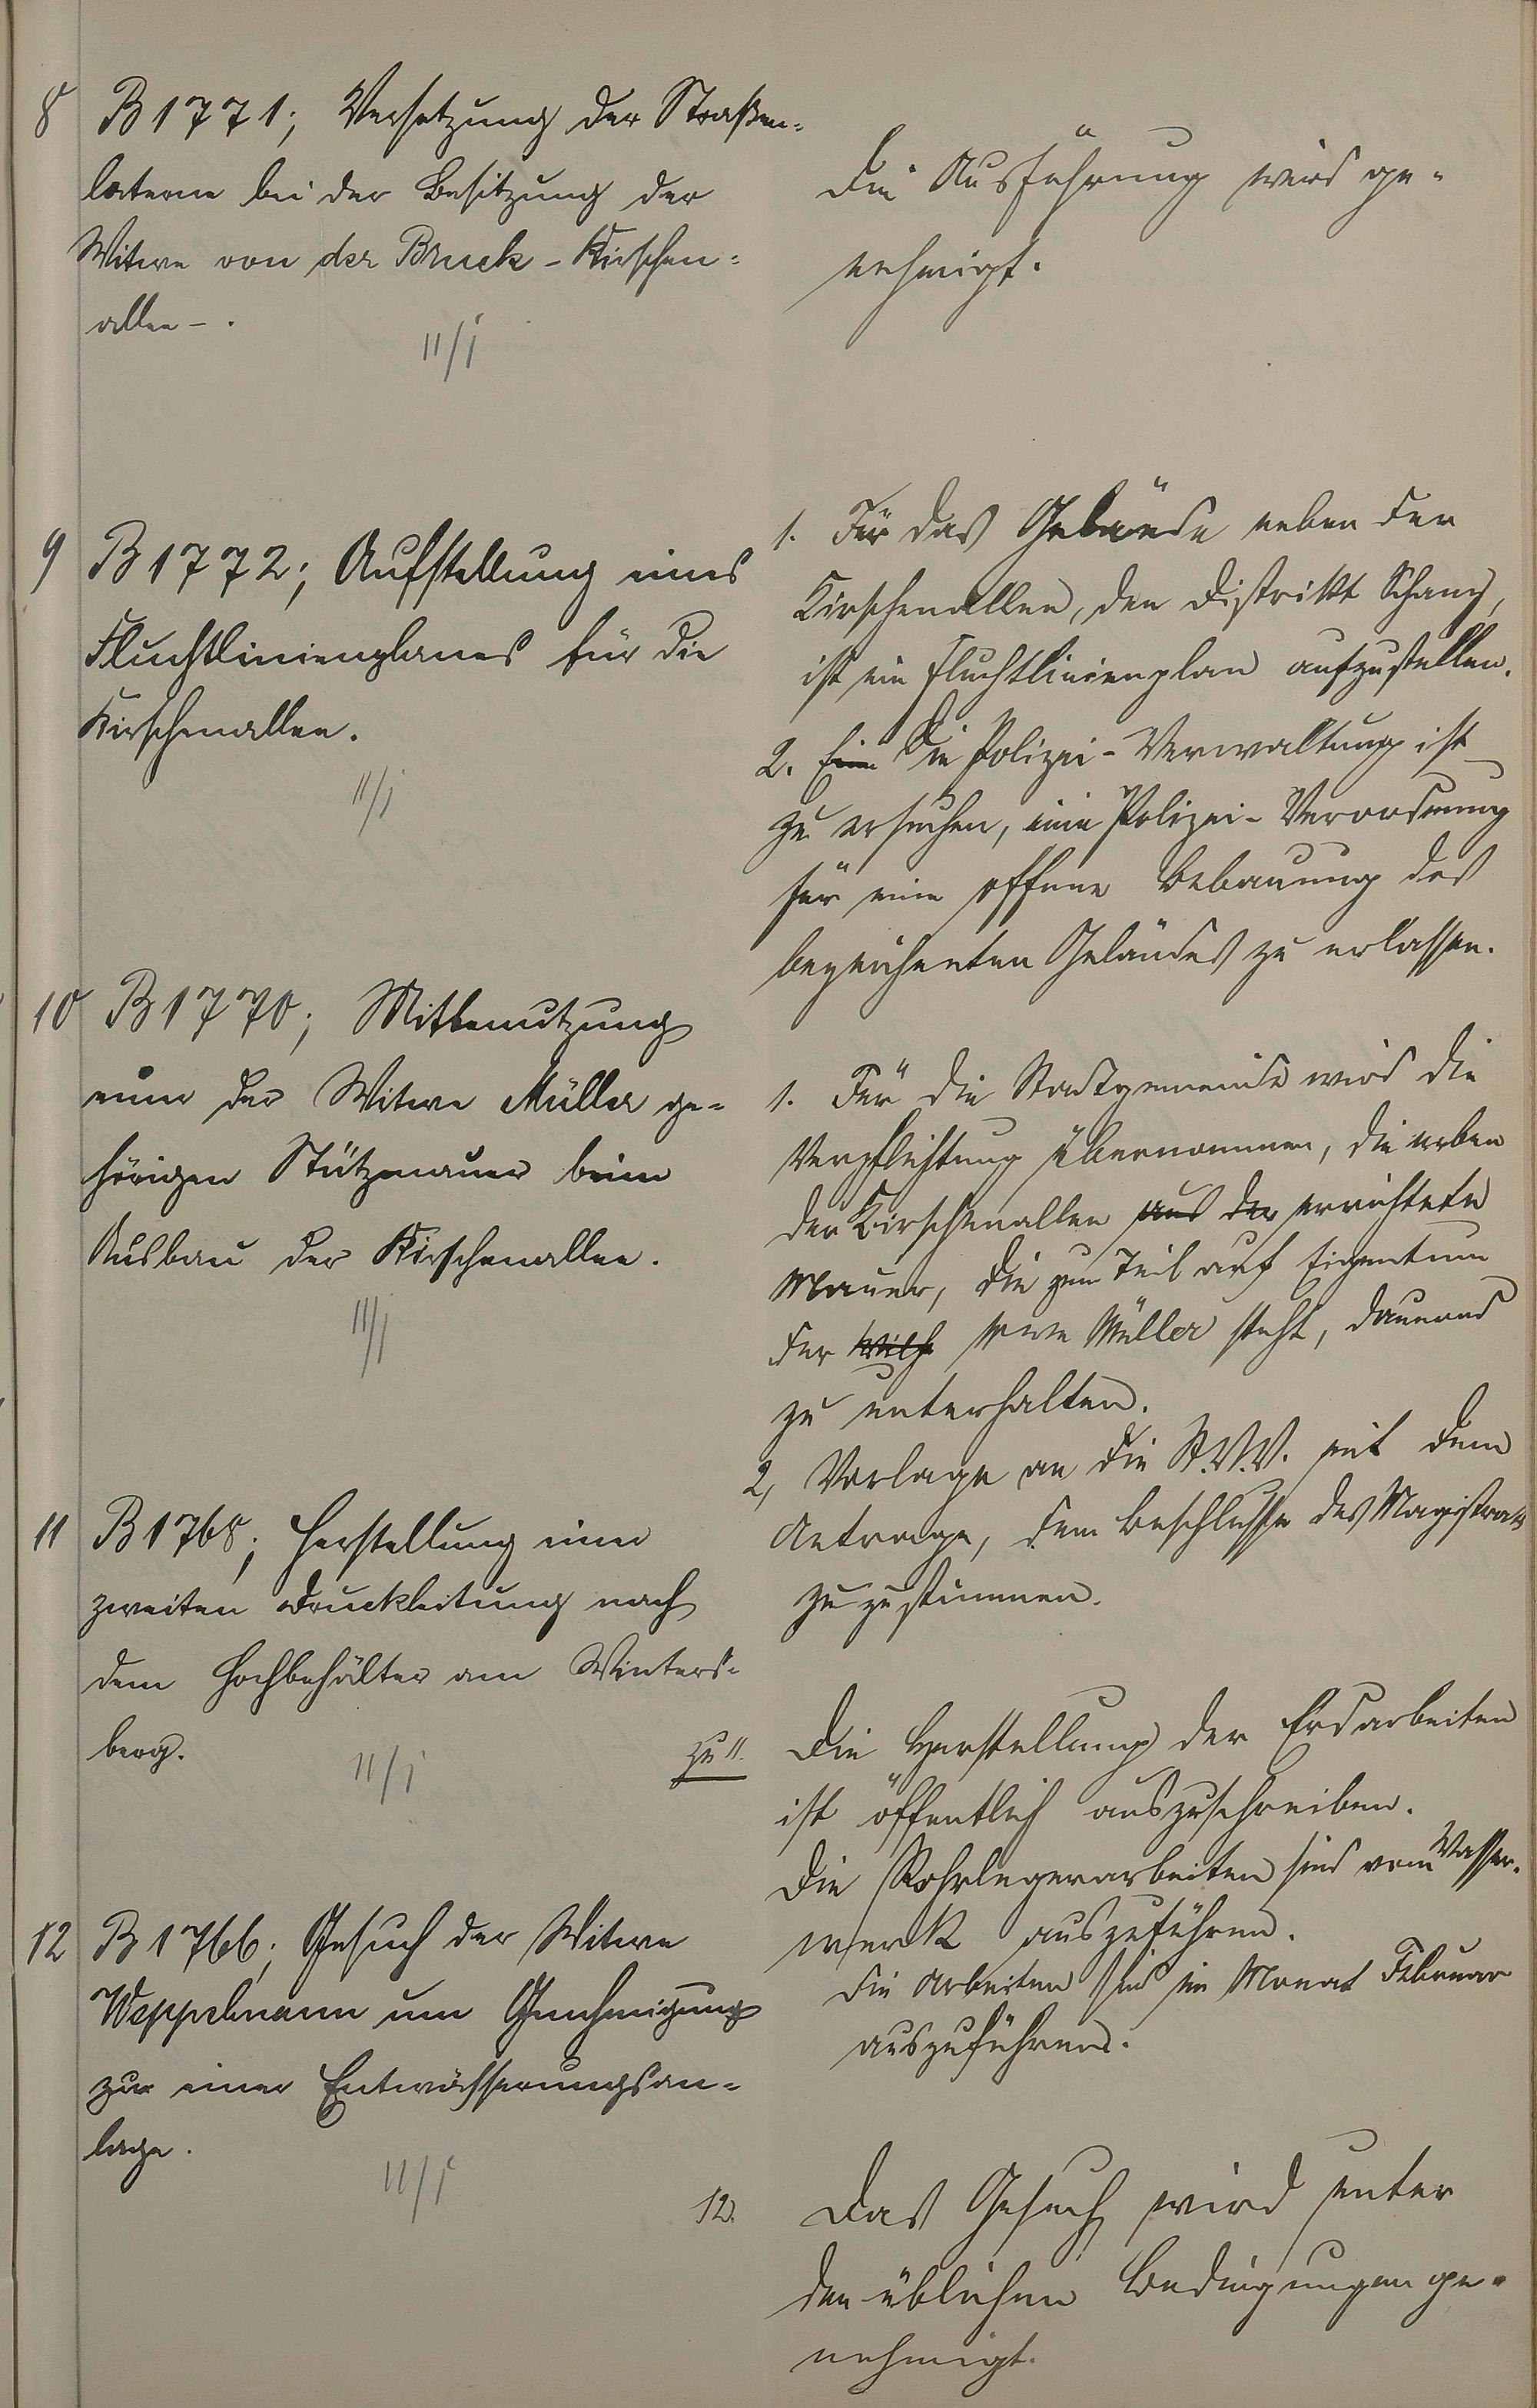 8 B 1771; Versetzung der Straßen-
laterne bei der Besitzung der
Witwe von der Bruck - Kirschen-
allee - .
11/I
Die Ausführung wird ge-
nehmigt.
9 B 1772; Aufstellung eines
Fluchtlinienplanes für die
Kirschenallee.
11/I
1. Für das Gelände neben der
Kirschenallee, den Distrikt Schanz,
ist ein Fluchtlinienplan aufzustellen.
2. Eine Die Polizei-Verwaltung ist
zu ersuchen, eine Polizei-Verordnung
für eine offene Bebauung des
bezeichneten Geländes zu erlassen.
10 B 1770; Mitbenutzung
einer der Witwe Müller ge-
hörigen Stützmauer beim
Ausbau der Kirschenallee.
11/I
1. Für die Stadtgemeinde wird die
Verpflichtung übernommen, die neben
der Kirschenallee aus der errichtete
Mauer, die zum Teil auf Eigentum
der Wwe Müller steht, dauernd
zu unterhalten.
2, Vorlage an die St.V.V. mit dem
Antrage, dem Beschlusse des Magistrats
zuzustimmen.
11 B 1768; Herstellung einer
zweiten Druckleitung nach
dem Hochbehälter am Winters-
berg.
11/I
zu 11. Die Herstellung der Erdarbeiten
ist öffentlich auszuschreiben.
Die Rohrlegerarbeiten sind vom Wasser-
werk auszuführen.
Die Arbeiten sind im Monat Februar
auszuführen.
12 B 1766; Gesuch der Witwe
Weppelmann um Genehmigung
zu einer Entwässerungsan-
lage.
11/I
12. Das Gesuch wird unter
den üblichen Bedingungen ge-
nehmigt.